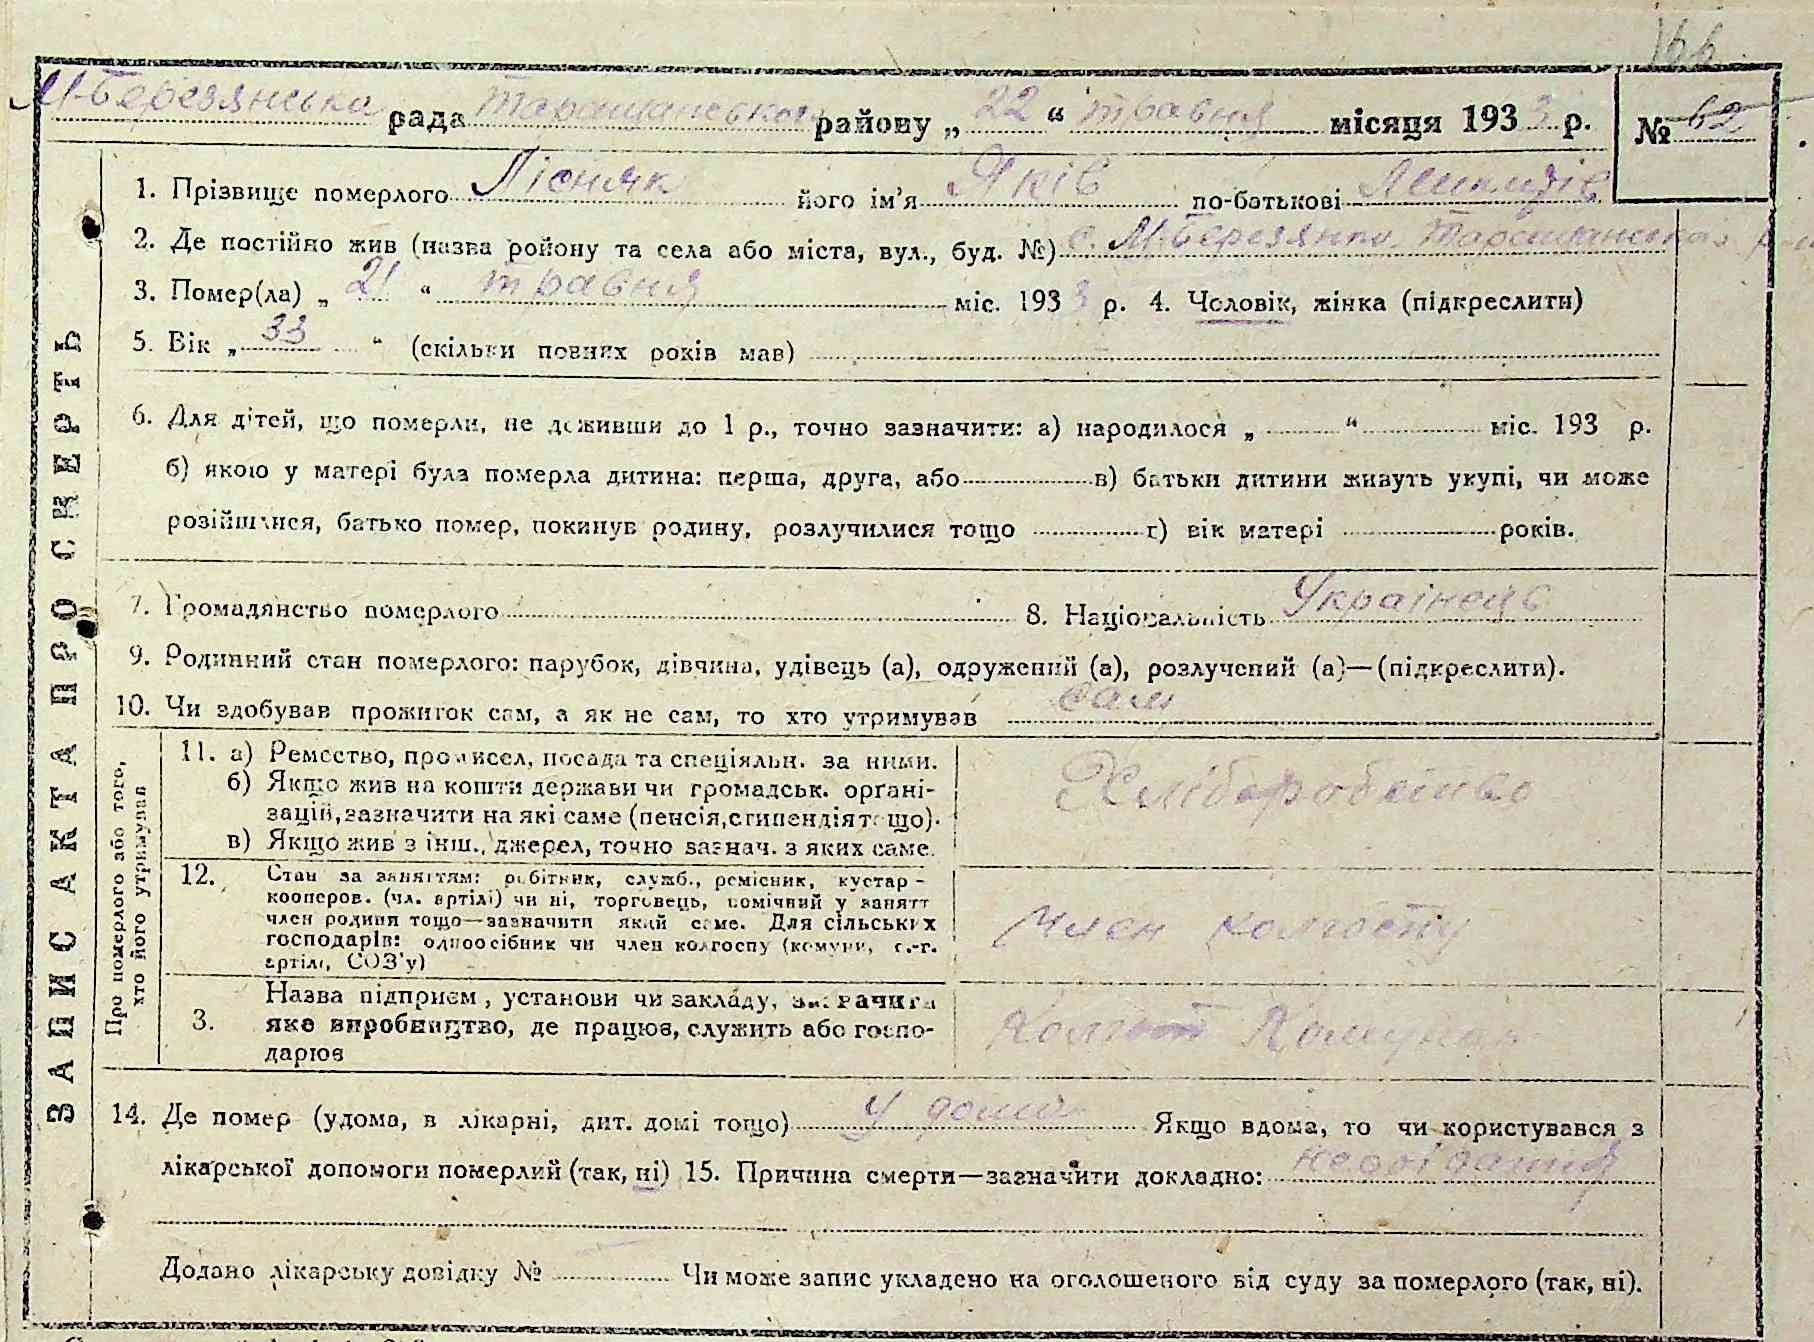 166
М-Березянська рада Таращанського району „ 22 “ травня місяця 1933 р. № 62
ЗАПИС АКТА ПРО СМЕРТЬ
1. Прізвище померлого Лісняк його ім'я Яків по-батькові
2. Де постійно жив (назва ройону та села або міста, вул., буд. №) с. М-Березянка Таращанського р-ну
3. Помер(ла) „ 21 “ травня міс. 1933 р. 4. Чоловік, жінка (підкреслити)
5. Вік „ 33 “ (скільки повних років мав)
6. Для дітей, що померли, не доживши до 1 р., точно зазначити: а) народилося „ “ міс. 193 р.
б) якою у матері була померла дитина: перша, друга, або в) батьки дитини живуть укупі, чи може
розійшлися, батько помер, покинув родину, розлучилися тощо г) вік матері років.
7. Громадянство померлого 8. Національність Українець
9. Родинний стан померлого: парубок, дівчина, удівець (а), одружений (а), розлучений (а)—(підкреслити).
10. Чи здобував прожиток сам, а як не сам, то хто утримував сам
Про померлого або того,
хто його утримував
11. а) Ремество, промисел, посада та спеціяльн. за ними.
б) Якщо жив на кошти держави чи громадськ. орґані-
зацій, зазначити на які саме (пенсія, стипендія тощо).
в) Якщо жив з інш., джерел, точно зазнач. з яких саме.
Хліборобство
12. Стан за заняттям: робітник, служб., ремісник, кустар -
кооперов. (чл. артілі) чи ні, торговець, помічний у занятт
член родини тощо—зазначити який саме. Для сільських
господарів: одноосібник чи член колгоспу (комуни, с.-г.
артілі, СОЗ'у)
Член колгоспу
3. Назва підприєм, установи чи закладу, зазначити
яке виробництво, де працює, служить або госпо-
дарює
Колгосп Комунар
14. Де помер (удома, в лікарні, дит. домі тощо) у дома Якщо вдома, то чи користувався з
лікарської допомоги померлий (так, ні) 15. Причина смерти—зазначити докладно: недоїдання
Додано лікарську довідку № Чи може запис укладено на оголошеного від суду за померлого (так, ні).